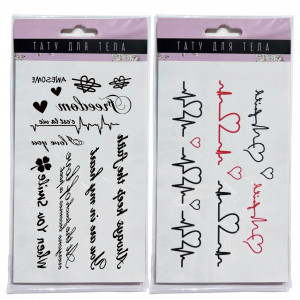 ТАТУ ДЛЯ ТЕЛА
AWESOME
Freedom
c'est la vie
I love you
When You Smile
You are in my heart
Always keep the faith
ТАТУ ДЛЯ ТЕЛА